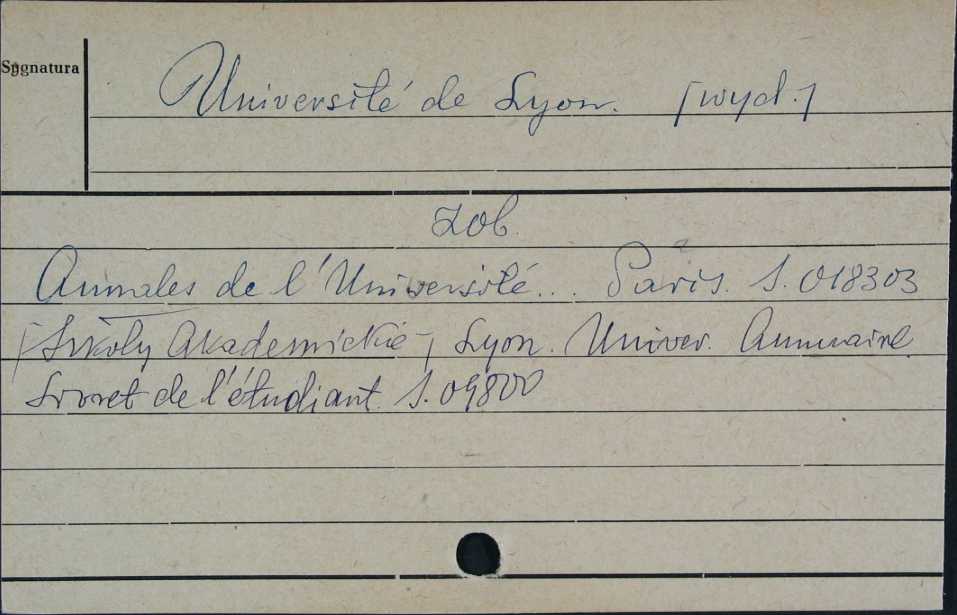 Sygnatura
Université de Lyon. [wyd.]
zob.
Annales de l'Université... Paris. S. 018303
[Szkoły Akademickie], Lyon. Univer. Annuaire.
Livret de l'étudiant. S. 09800